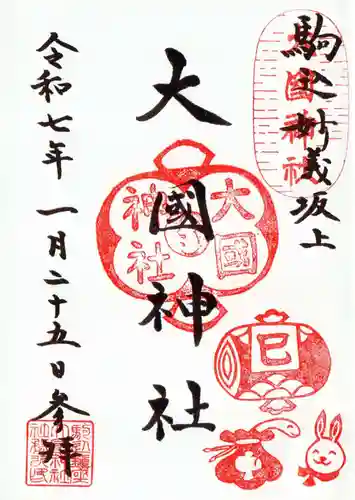 駒込妙義坂上
大國神社
令和七年一月二十五日参拝
大國
神社
巳